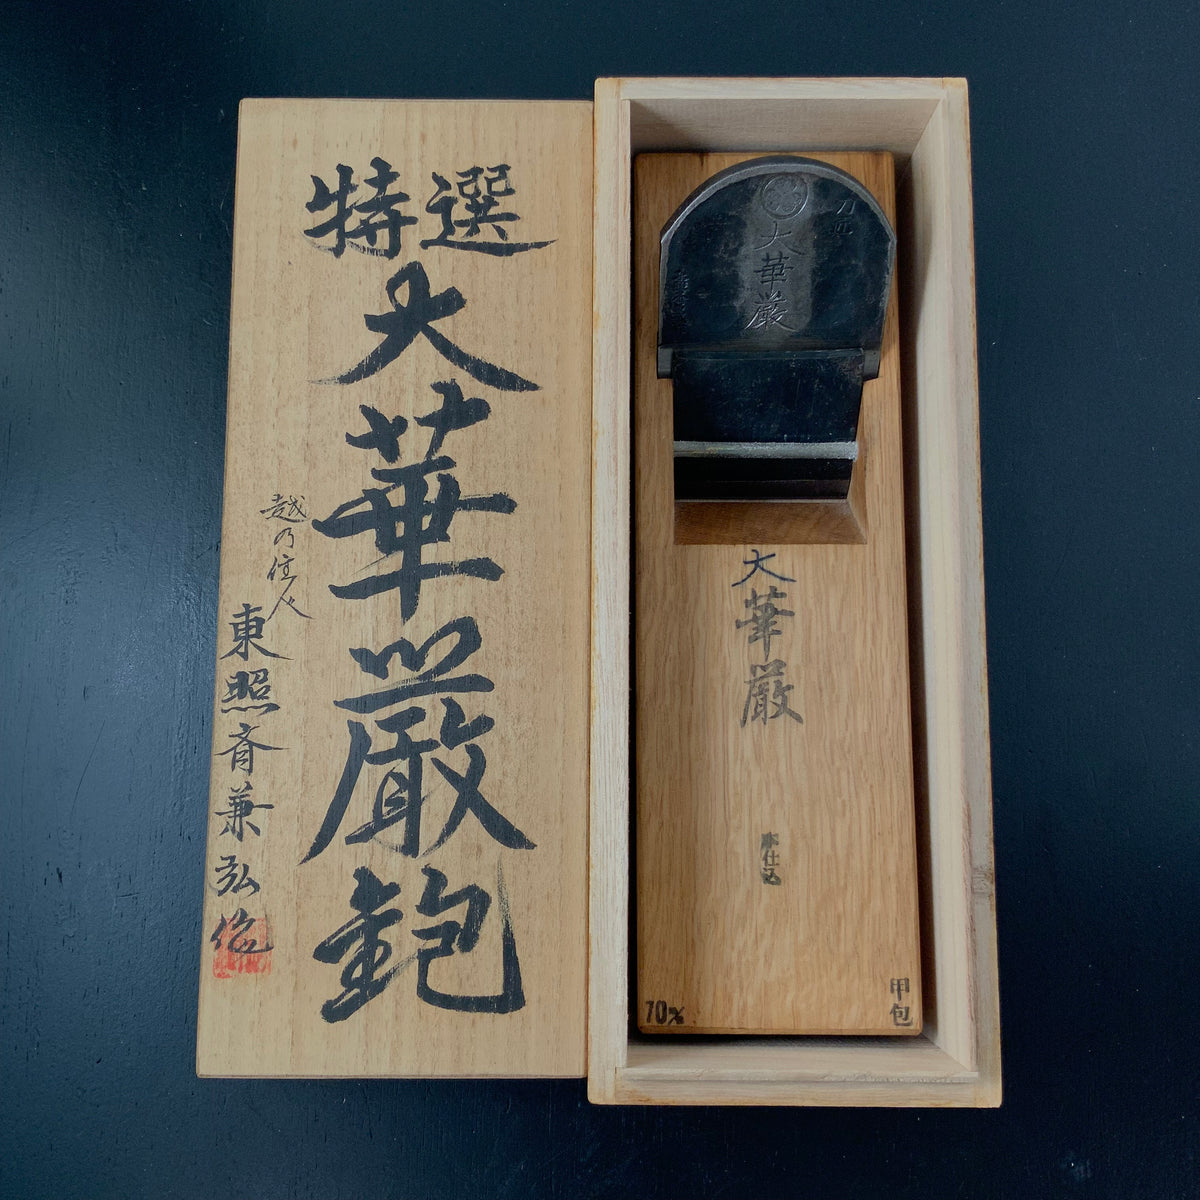 特選
大華厳鉋
越乃住人
東照斉兼弘作
刀匠
大華厳
大華厳
本仕込
70㎜
甲包